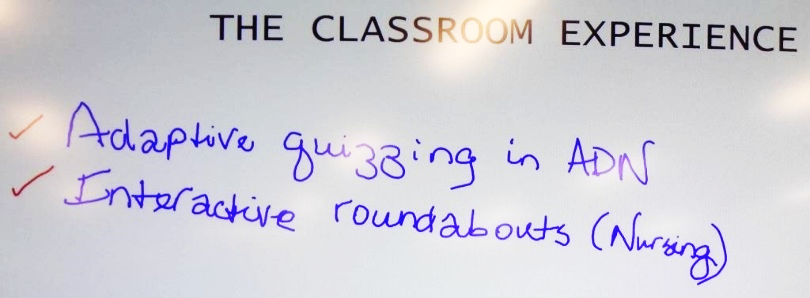 THE CLASSROOM EXPERIENCE
✓ Adaptive quizzing in ADN
✓ Interactive roundabouts (Nursing)